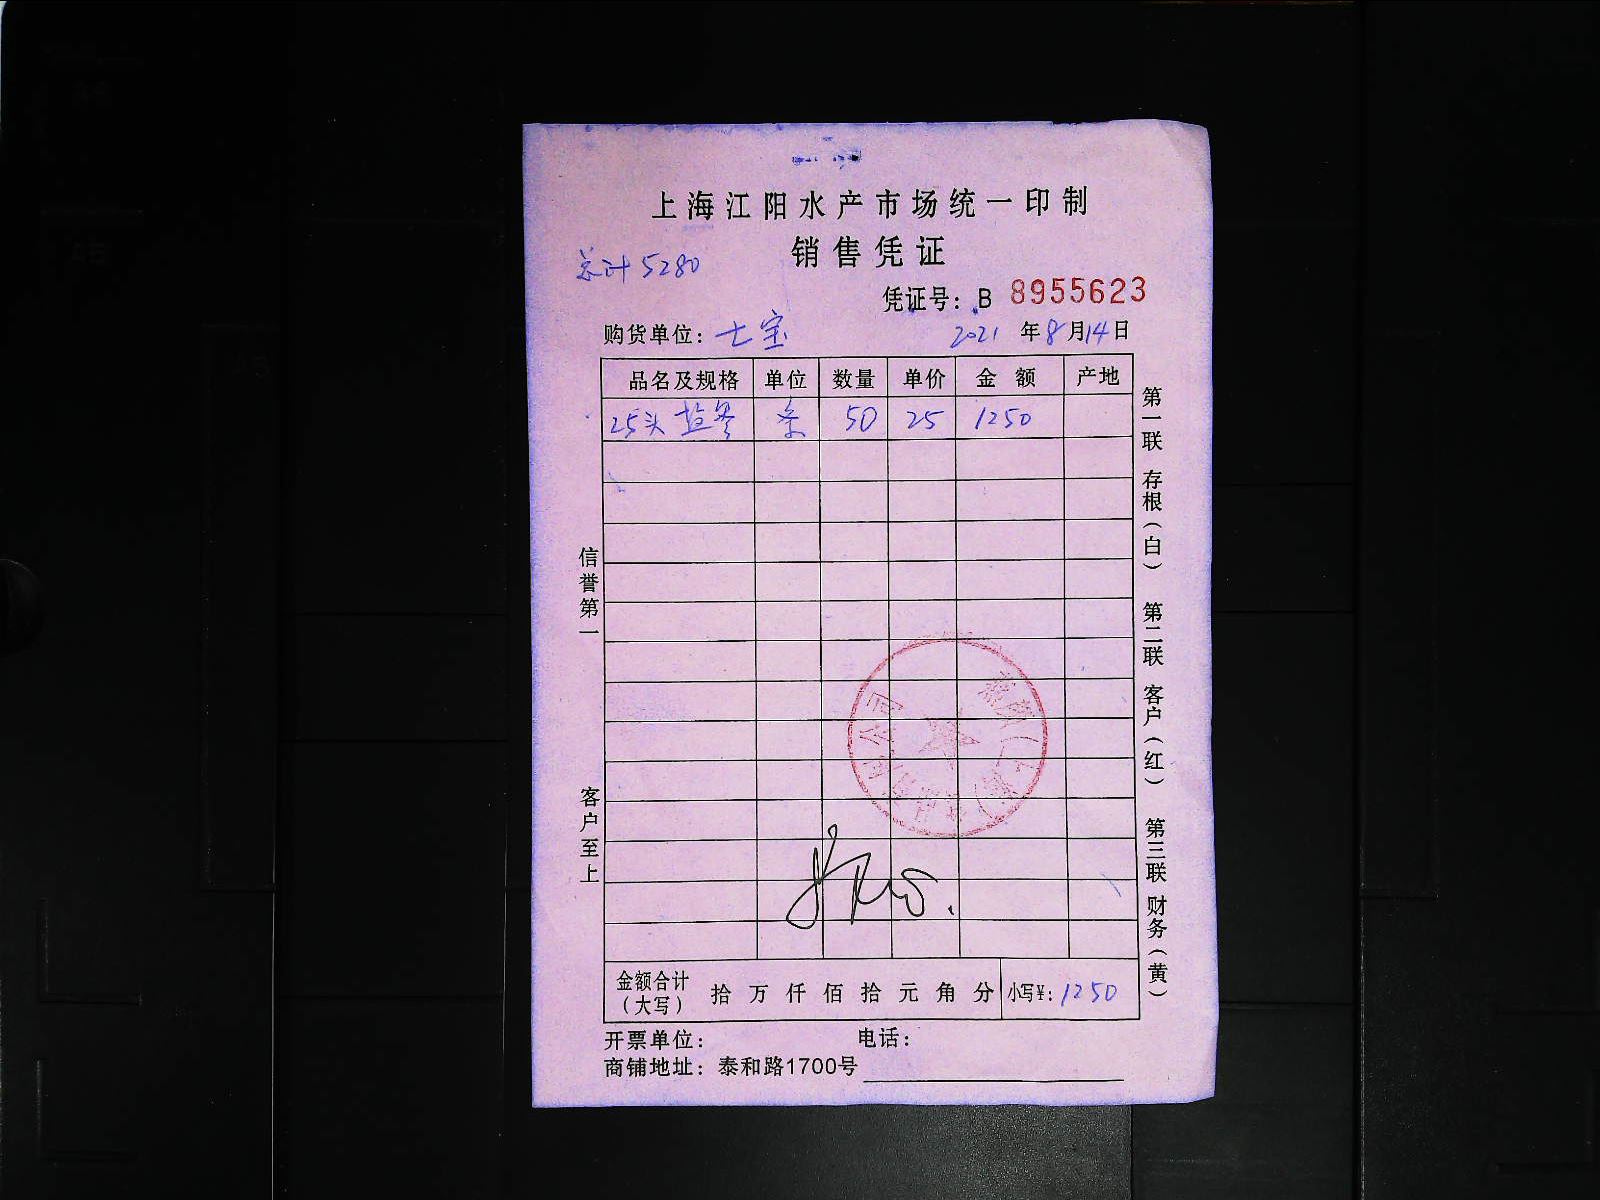 上海江阳水产市场统一印制
销售凭证
总计 5280
凭证号：B 8955623
购货单位：七宝 2021 年 8 月 14 日
品名及规格 单位 数量 单价 金额 产地
25头 盐参 条 50 25 1250
第一联 存根（白） 第二联 客户（红） 第三联 财务（黄）
信誉第一
客户至上
有限公司
金额合计（大写） 拾 万 仟 佰 拾 元 角 分 小写¥：1250
开票单位： 电话：
商铺地址：泰和路1700号